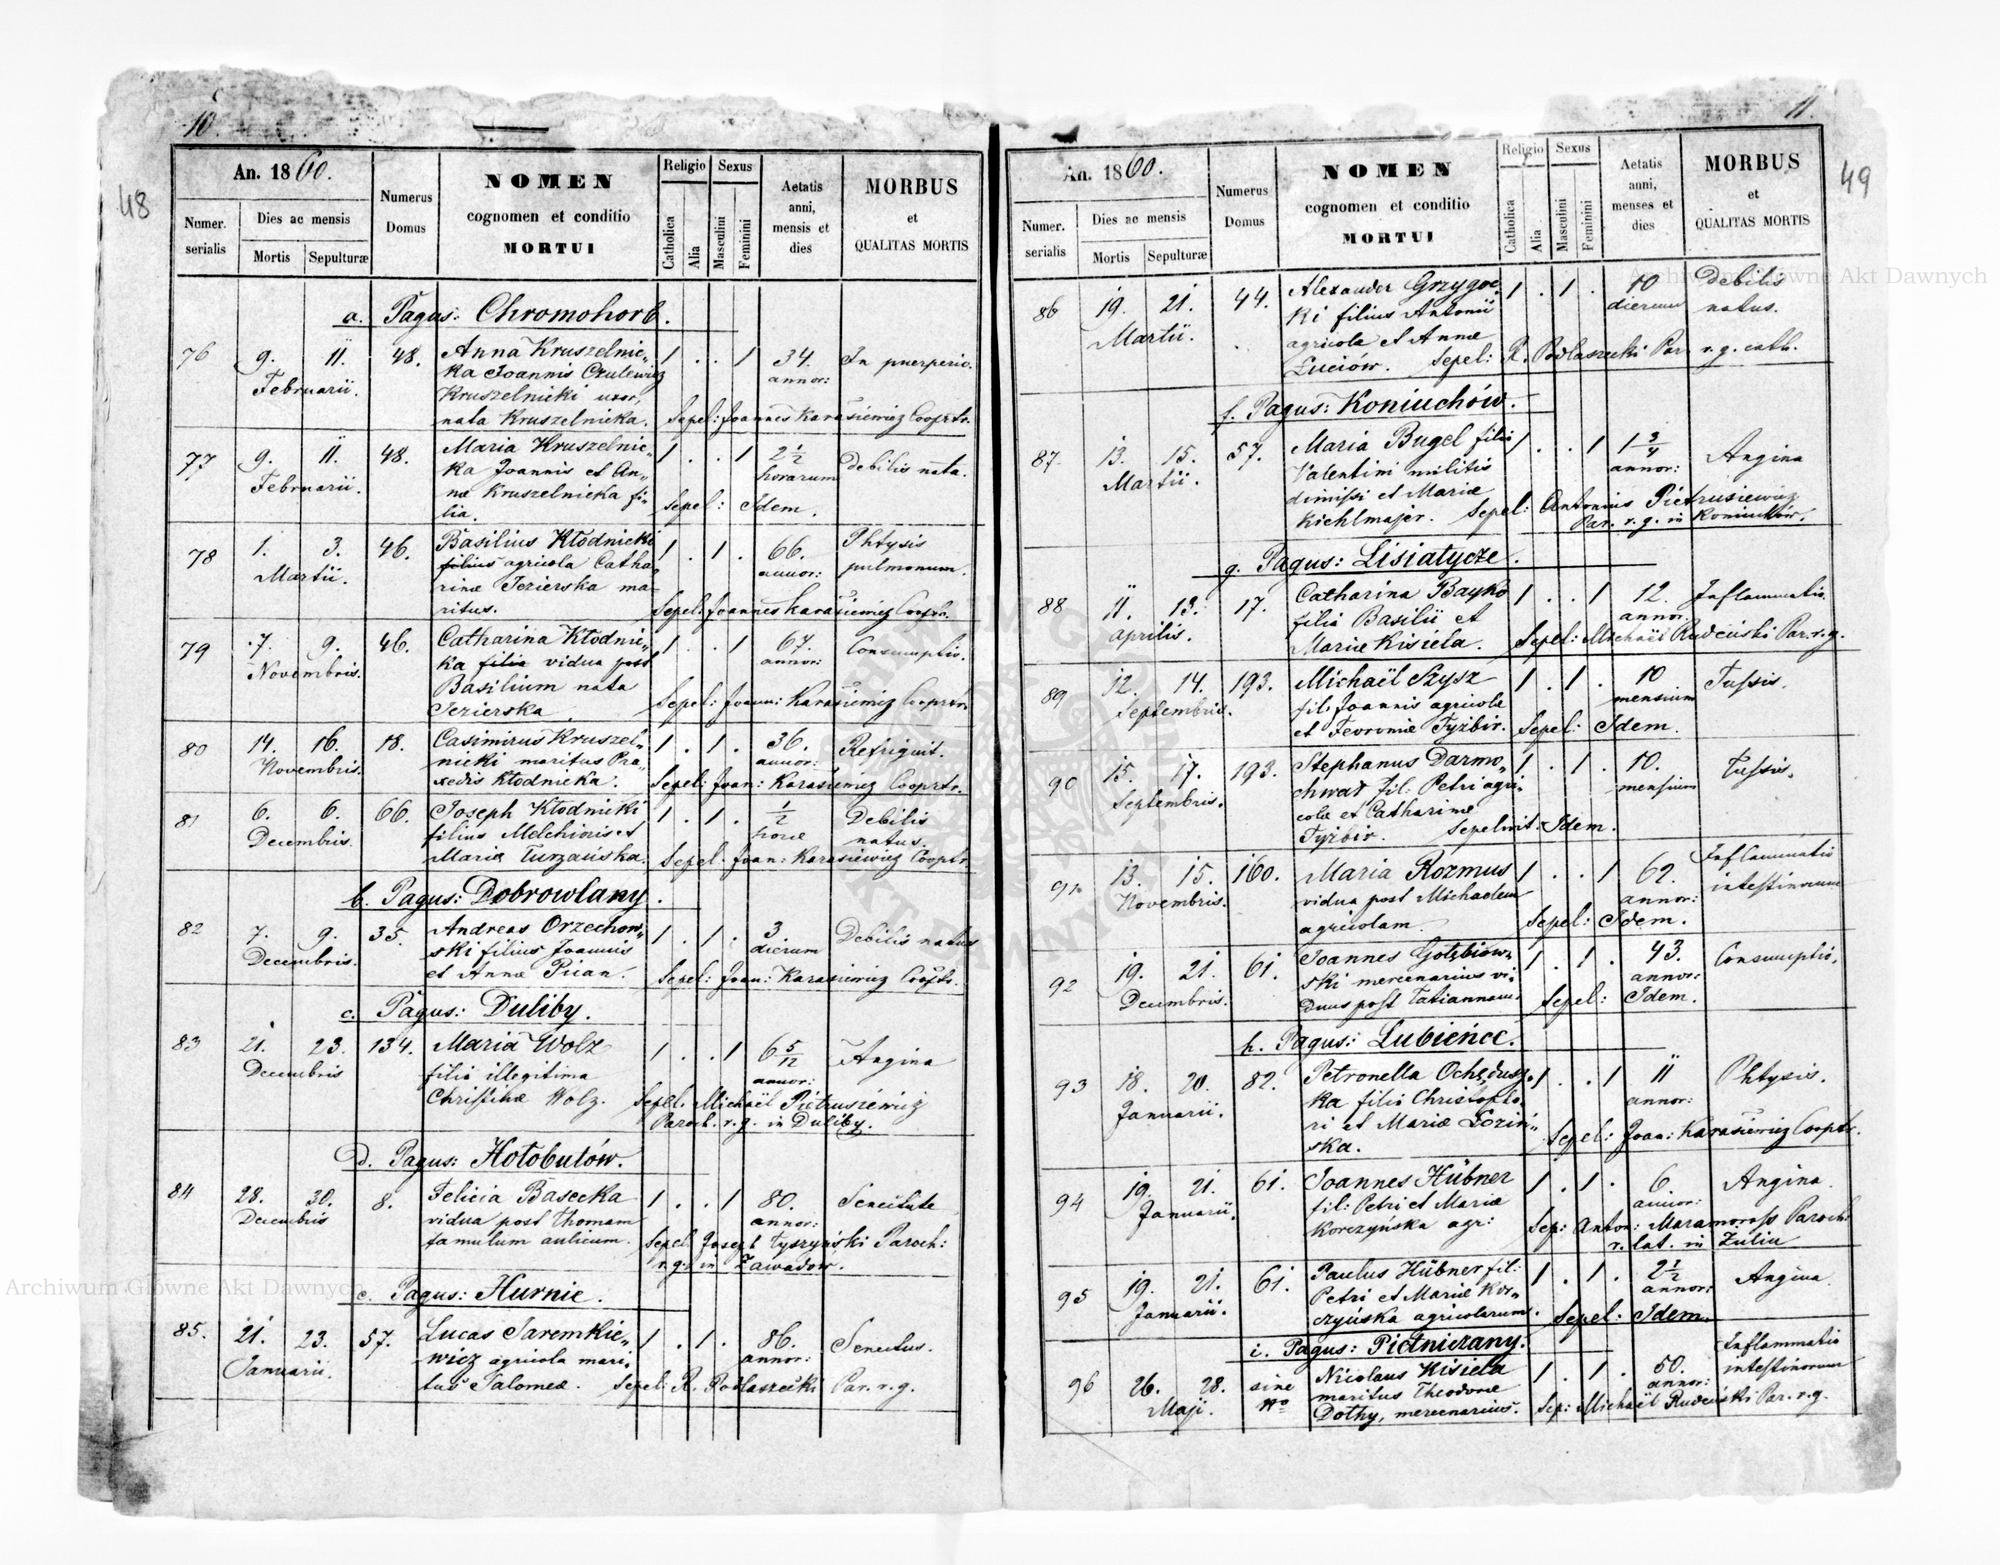 10.
48
An. 1860.
Numer. serialis
Dies ac mensis
Mortis
Sepulturæ
Numerus Domus
NOMEN
cognomen et conditio
MORTUI
Religio
Catholica
Alia
Sexus
Masculini
Feminini
Aetatis anni, mensis et dies
MORBUS
et
QUALITAS MORTIS
a. Pagus: Chromohorb.
76 9. 11. 48. Anna Kruszelnic= 1 . . 1 34. In puerperio.
Februarii. ka Joannis Czulewicz annor:
Kruszelnicki uxor,
nata Kruszelnicka. Sepel: Joannes Karasiewicz Cooprtr.
77 9. 11. 48. Maria Kruszelnic= 1 . . 1 2 1/2 Debilis nata.
Februarii. ka Joannis et An= horarum
næ Kruszelnicka fi=
lia. Sepel: Idem.
78 1. 3. 46. Basilius Kłodnicki 1 . 1 . 66. Phtysis
Martii. filius agricola Catha= annor: pulmonum.
rinæ Jezierska ma=
ritus. Sepel: Joannes Karasiewicz Cooprtr.
79 7. 9. 46. Catharina Kłodnic= 1 . . 1 67. Consumptis.
Novembris. ka filia vidua post annor:
Basilium nata
Jezierska. Sepel: Joann: Karasiewicz Cooprtr.
80 14. 16. 18. Casimirus Kruszel= 1 . 1 . 36. Refriguit.
Novembris. nicki maritus Pra= annor:
xedis Kłodnicka. Sepel: Joan: Karasiewicz Cooprtr.
81 6. 6. 66. Joseph Kłodnicki 1 . 1 . 1/2 Debilis
Decembris. filius Melchioris et horæ natus.
Mariæ Turzańska. Sepel. Joan: Karasiewicz Cooptr.
b. Pagus: Dobrowlany.
82 7. 9. 35. Andreas Orzechow= 1 . 1 . 3. Debilis natus
Decembris. ski filius Joannis dierum
et Annæ Prian. Sepel: Joan: Karasiewicz Cooptr.
c. Pagus: Duliby.
83 21. 23. 134. Maria Wolz 1 . . 1 6 5/12 Angina
Decembris filia illegitima annor:
Christinæ Wolz. Sepel. Michaël Pietrusiewicz
Paroch. r. g. in Duliby.
d. Pagus: Hołobutów.
84 28. 30. 8. Felicia Basecka 1 . . 1 80. Senectute
Decembris vidua post Thomam annor:
famulum aulicum. Sepel. Joseph Tyszyński Paroch:
r. g. in Zawadow.
e. Pagus: Hurnie.
85. 21. 23. 57. Lucas Jaremkie= 1 . 1 . 86. Senectus.
Januarii. wicz agricola mari= annor:
tus Salomeæ. Sepel: R. Podlaszecki Par. r. g.
11.
49
An. 1860.
Numer. serialis
Dies ac mensis
Mortis
Sepulturæ
Numerus Domus
NOMEN
cognomen et conditio
MORTUI
Religio
Catholica
Alia
Sexus
Masculini
Feminini
Aetatis anni, menses et dies
MORBUS
et
QUALITAS MORTIS
86 19. 21. 44. Alexander Grzygoc= 1 . 1 . 10 Debilis
Martii. ki filius Antonii dierum natus.
agricolæ et Annæ
Luciów. Sepel: R. Podlaszecki Par r. g. cath.
f. Pagus: Koniuchów.
87. 13. 15. 57. Maria Bugel filia 1 . . 1 1 3/4 Angina
Martii. Valentini militis annor:
dimissi et Mariæ
Kichlmajer. Sepel: Antonius Pietrusiewicz
Par. r. g. in Koniuchów.
g. Pagus: Lisiatycze.
88 11. 13. 17. Catharina Bayko 1 . . 1 12. Inflammatio.
aprilis. filia Basilii et annor:
Mariæ Kisieła. Sepel: Michaël Rudeński Par. r. g.
89 12. 14. 193. Michaël Szysz 1 . 1 . 10 Tussis.
Septembris. fil: Joannis agricolæ mensium
et Fevroniæ Tyżbir. Sepel: Idem.
90 15. 17. 193. Stephanus Darmo= 1 . 1 . 10. Tussis.
Septembris. chwał fil: Petri agri= mensium
colæ et Catharinæ
Tyżbir. Sepelivit: Idem.
91. 13. 15. 160. Maria Rozmus 1 . . 1 62. Inflammatio
Novembris. vidua post Michaelem annor: intestinorum
agricolam. Sepel: Idem.
92 19. 21. 61. Joannes Gołębiow= 1 . 1 . 43. Consumptio.
Decembris. ski mercenarius vi= annor:
duus post Tatiannam. Sepel: Idem.
h. Pagus: Lubieńce.
93 18. 20. 82. Petronella Ochędusz= 1 . . 1 11 Phtysis.
Januarii. ka filia Christopho= annor:
ri et Mariæ Łoziń=
ska. Sepel: Joan: Karasiewicz Cooptr.
94 19. 21. 61. Joannes Hübner 1 . 1 . 6 Angina.
Januarii. fil: Petri et Mariæ annor:
Korczyńska agr: Sep: Anton: Maramoross Paroch:
r. lat. in Żulin
95 19. 21. 61. Paulus Hübner fil: 1 . 1 . 2 1/2 Angina.
Januarii. Petri et Mariæ Kor= annor:
czyńska agricolarum. Sepel: Idem.
i. Pagus: Piętniczany.
96 26. 28. sine Nicolaus Kisieła 1 . 1 . 50. Inflammatio
Maji. No maritus Theodoræ annor: intestinorum
Dothy, mercenarius. Sep: Michaël Rudeński Par. r. g.
Archiwum Główne Akt Dawnych
Archiwum Główne Akt Dawnych
ARCHIWUM GŁÓWNE AKT DAWNYCH